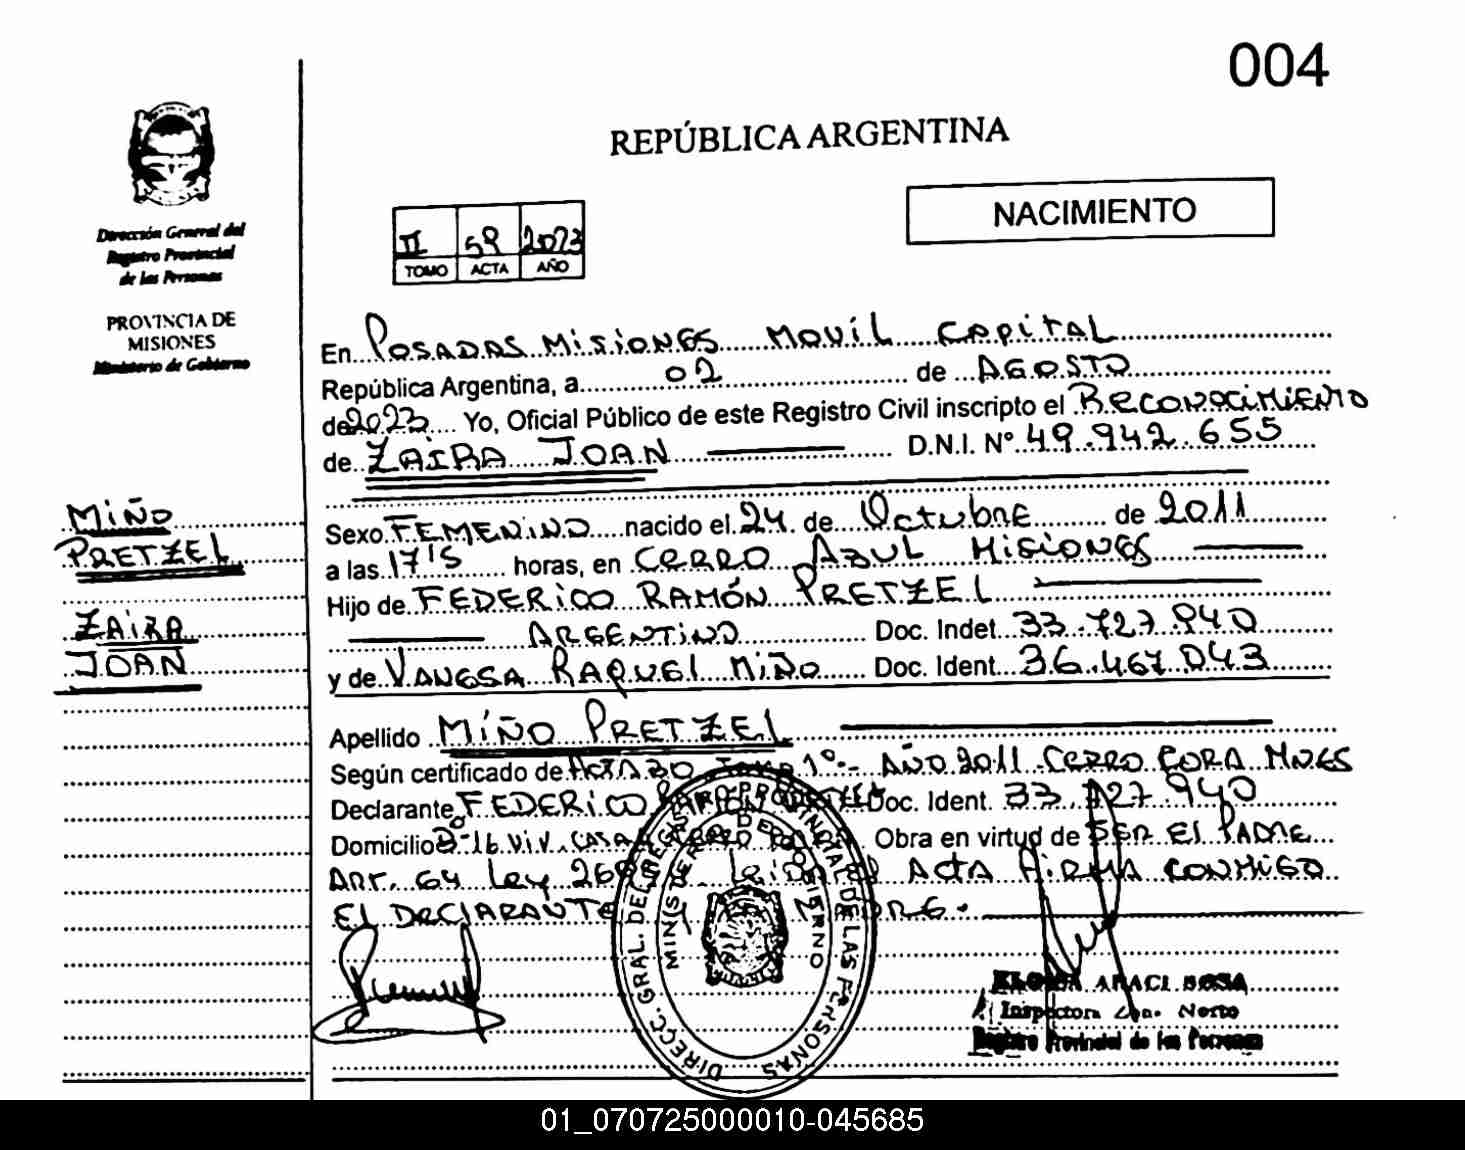 004
REPÚBLICA ARGENTINA
NACIMIENTO
Dirección General del
Registro Provincial
de las Personas
PROVINCIA DE
MISIONES
Ministerio de Gobierno
II 59 2023
TOMO ACTA AÑO
En POSADAS MISIONES MOVÍL CAPITAL
República Argentina, a 02 de AGOSTO
de 2023 Yo, Oficial Público de este Registro Civil inscripto el RECONOCIMIENTO
de ZAIRA JOAN D.N.I. N° 49.942.655
MIÑO
PRETZEL
ZAIRA
JOAN
Sexo FEMENINO nacido el 24 de Octubre de 2011
a las 17'5 horas, en CERRO AZUL MISIONES
Hijo de FEDERICO RAMÓN PRETZEL
ARGENTINO Doc. Indet. 33.727.940
y de VANESA RAQUEL MIÑO Doc. Ident. 36.467.043
Apellido MIÑO PRETZEL
Según certificado de ACTA 30 TOMO 1°- AÑO 2011 CERRO CORA MNES
Declarante FEDERICO RAMON PRETZEL Doc. Ident. 33.727.940
Domicilio B° 16 Viv. CASA CERRO Obra en virtud de SER EL PADRE
Art. 64 Ley Leida el ACTA FIRMA CONMIGO
EL DECLARANTE Y MADRE.
DIRECC. GRAL. DEL REGISTRO PROVINCIAL DE LAS PERSONAS
MINISTERIO DE GOBIERNO
ARACI SOSA
Inspectora Zona Norte
Registro Provincial de las Personas
01_070725000010-045685